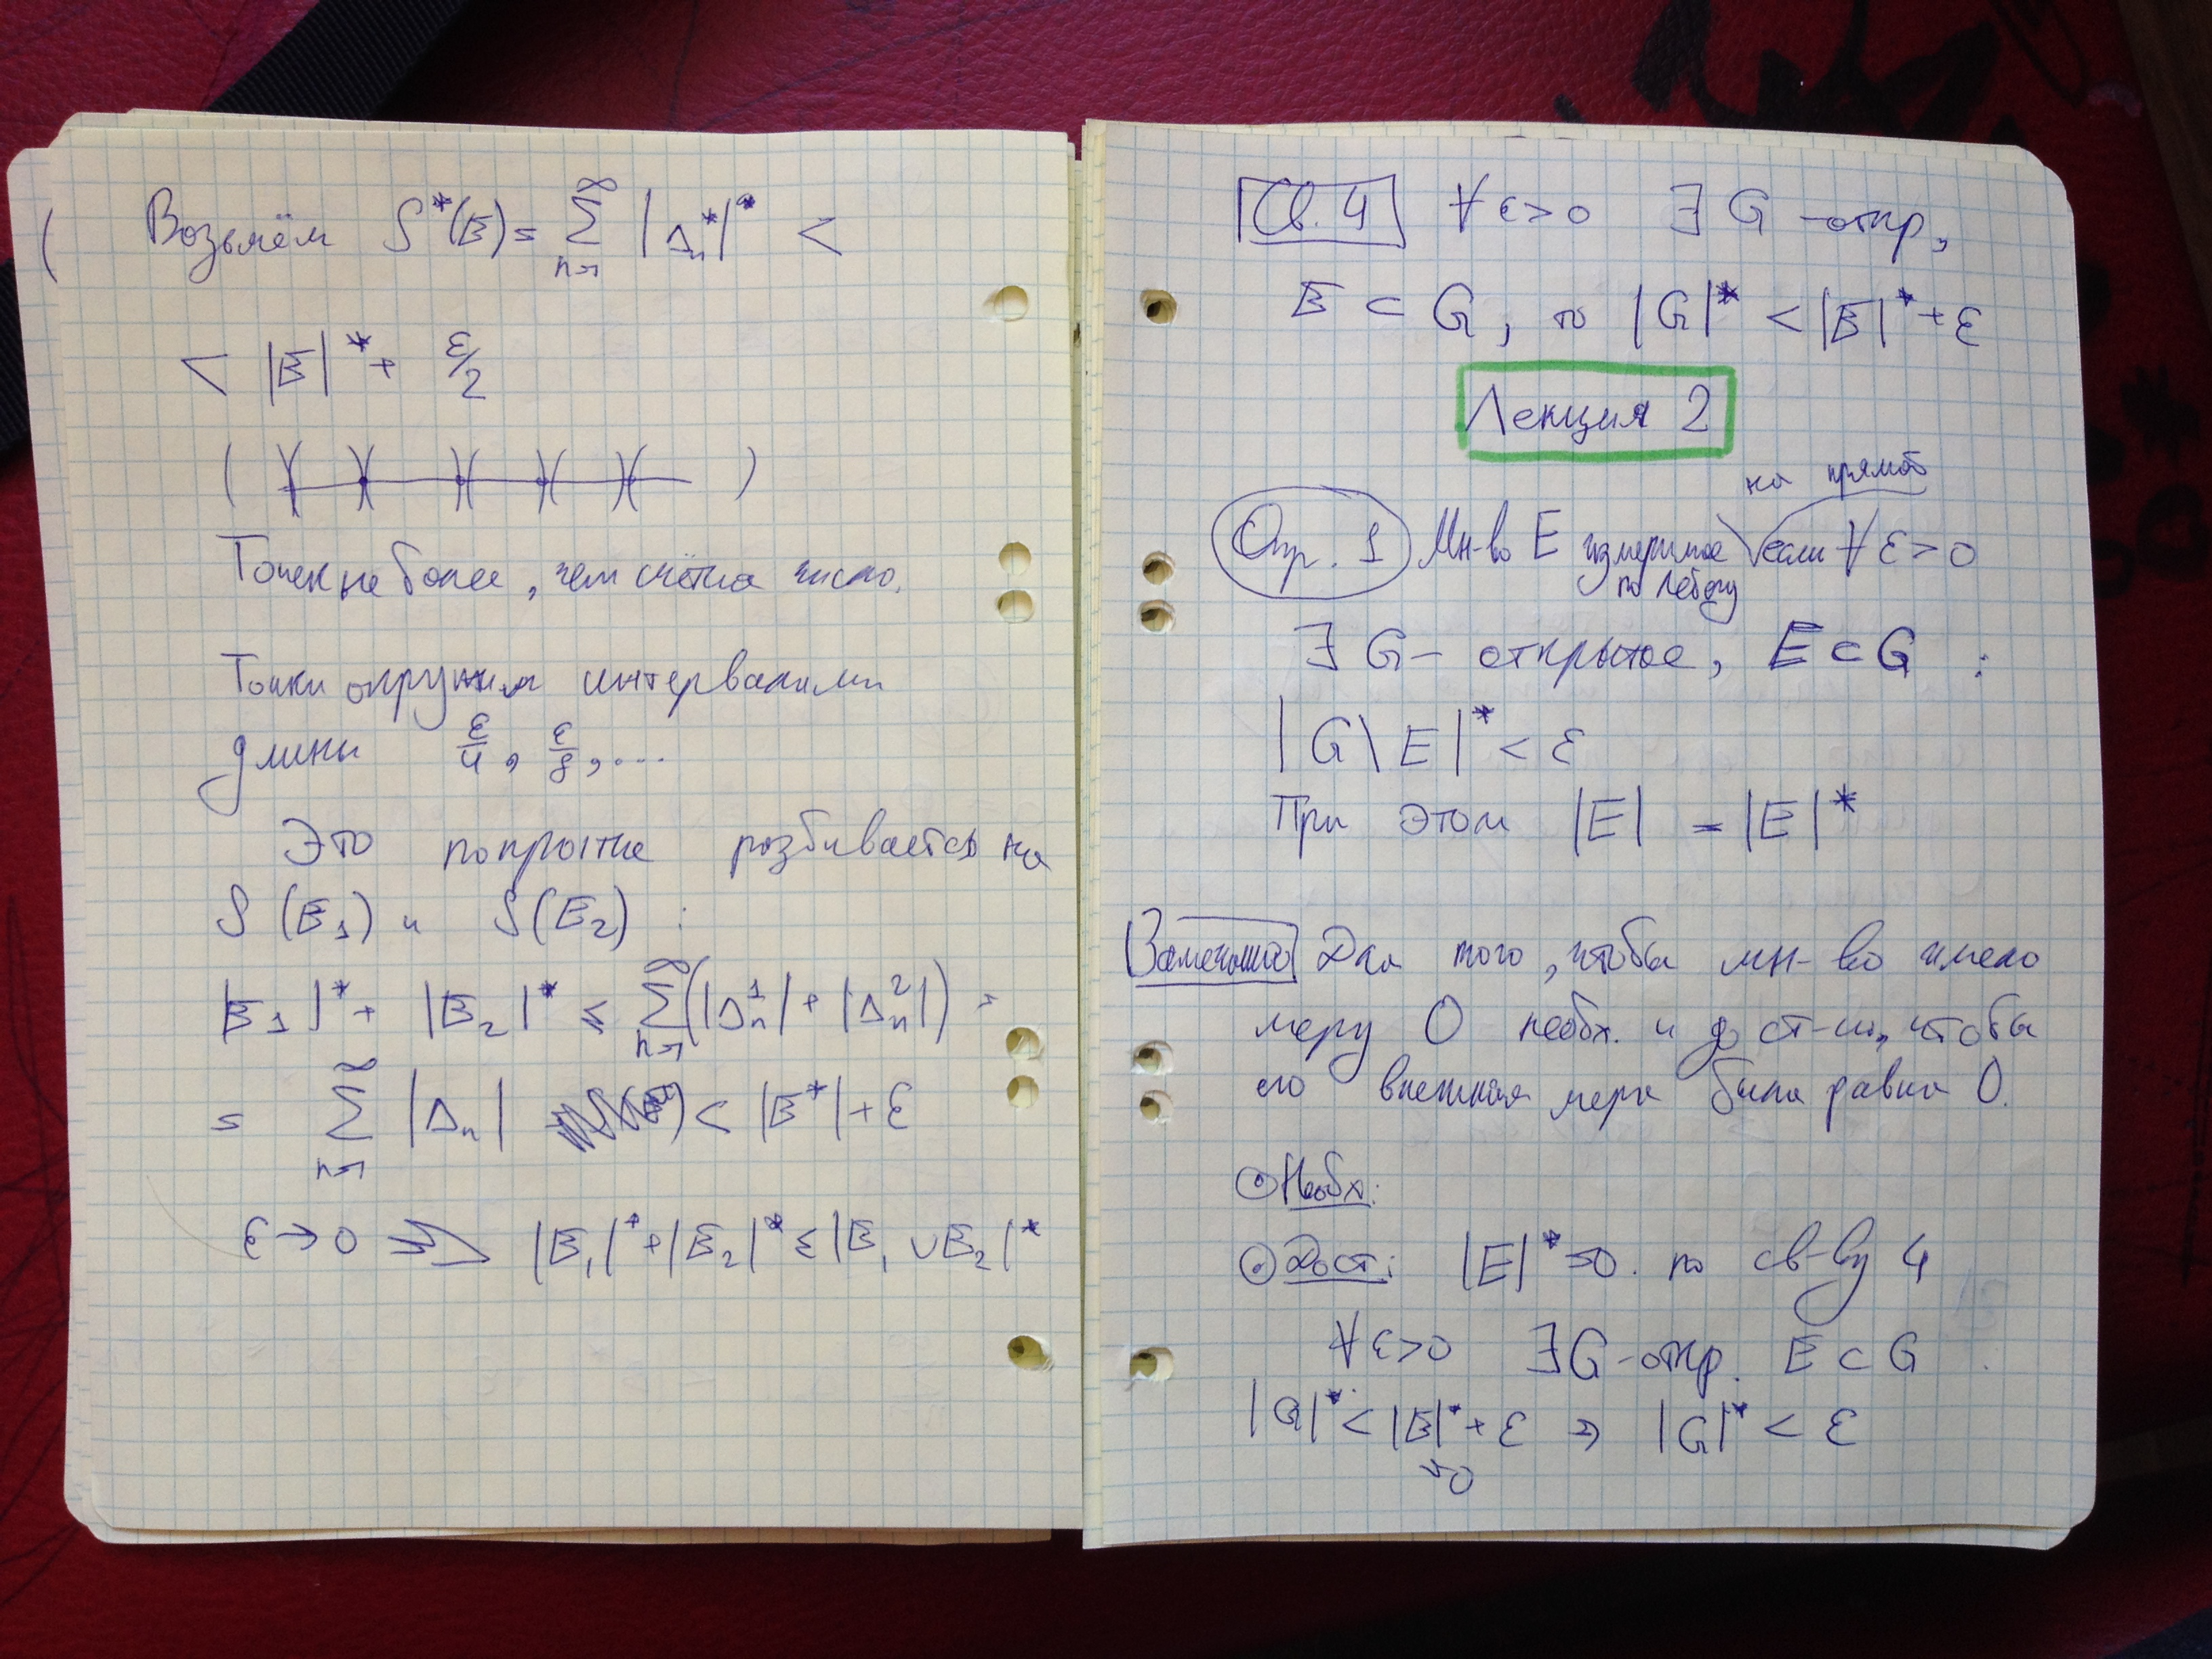 Возьмём S*(E) = ∑_{n=1}^{∞} |Δ_n^*|^* <
< |E|^* + ε/2
Точек не более, чем счётное число.
Точки окружим интервалами
длины ε/4, ε/8, ...
Это покрытие разбивается на
S(E_1) и S(E_2) :
|E_1|^* + |E_2|^* ≤ ∑_{n=1}^{∞} (|Δ_n^1| + |Δ_n^2|) =
= ∑_{n=1}^{∞} |Δ_n| < |E^*| + ε
ε → 0 ⇒ |E_1|^* + |E_2|^* ≤ |E_1 ∪ E_2|^*
Св. 4 ∀ ε > 0 ∃ G - откр,
E ⊂ G, то |G|^* < |E|^* + ε
Лекция 2
на прямой
Опр. 1 Мн-во E измеримое если ∀ ε > 0
по Лебегу
∃ G - открытое, E ⊂ G :
|G \ E|^* < ε
При этом |E| = |E|^*
Замечание Для того, чтобы мн-во имело
меру 0 необх. и дост-но, чтобы
его внешняя мера была равна 0.
Необх:
Дост: |E|^* = 0. по св-ву 4
∀ ε > 0 ∃ G - откр. E ⊂ G
|G|^* < |E|^* + ε ⇒ |G|^* < ε
=0